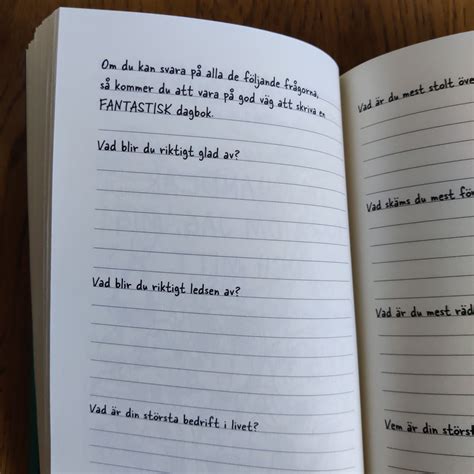 Om du kan svara på alla de följande frågorna,
så kommer du att vara på god väg att skriva en
FANTASTISK dagbok.
Vad blir du riktigt glad av?
Vad blir du riktigt ledsen av?
Vad är din största bedrift i livet?
Vad är du mest stolt öve
Vad skäms du mest för
Vad är du mest räd
Vem är din störst